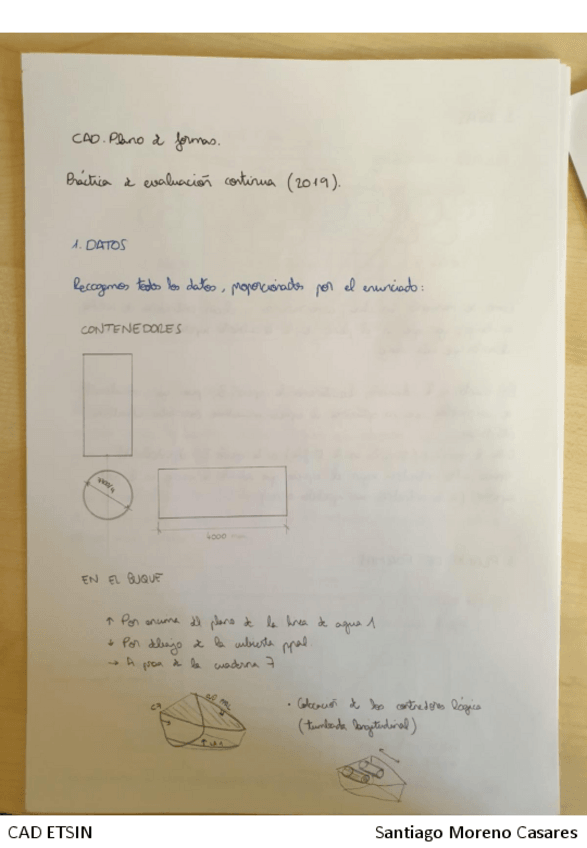 CAD. Plano de formas.
Práctica de evaluación continua (2019).
1. DATOS
Recogemos todos los datos, proporcionados por el enunciado:
CONTENEDORES
4000
EN EL BUQUE
↑ Por encima del plano de la línea de agua 1
↓ Por debajo de la cubierta ppal.
→ A proa de la cuaderna 7
C7
· Colocación de los contenedores lógica
(tumbada longitudinal)
CAD ETSIN
Santiago Moreno Casares